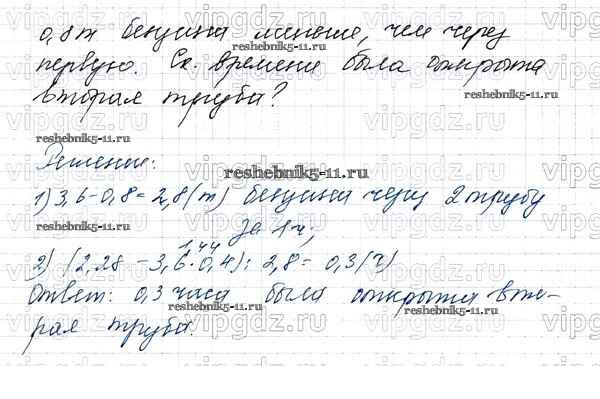 0,8 т бензина меньше, чем через
первую. Ск. времени была открыта
вторая труба?
Решение:
1) 3,6-0,8=2,8(т) бензина через 2 трубу
за 1 ч;
1,44
2) (2,28 - 3,6·0,4): 2,8= 0,3(ч)
Ответ: 0,3 часа была открыта вто-
рая труба.
vipgdz.ru
reshebnik5-11.ru